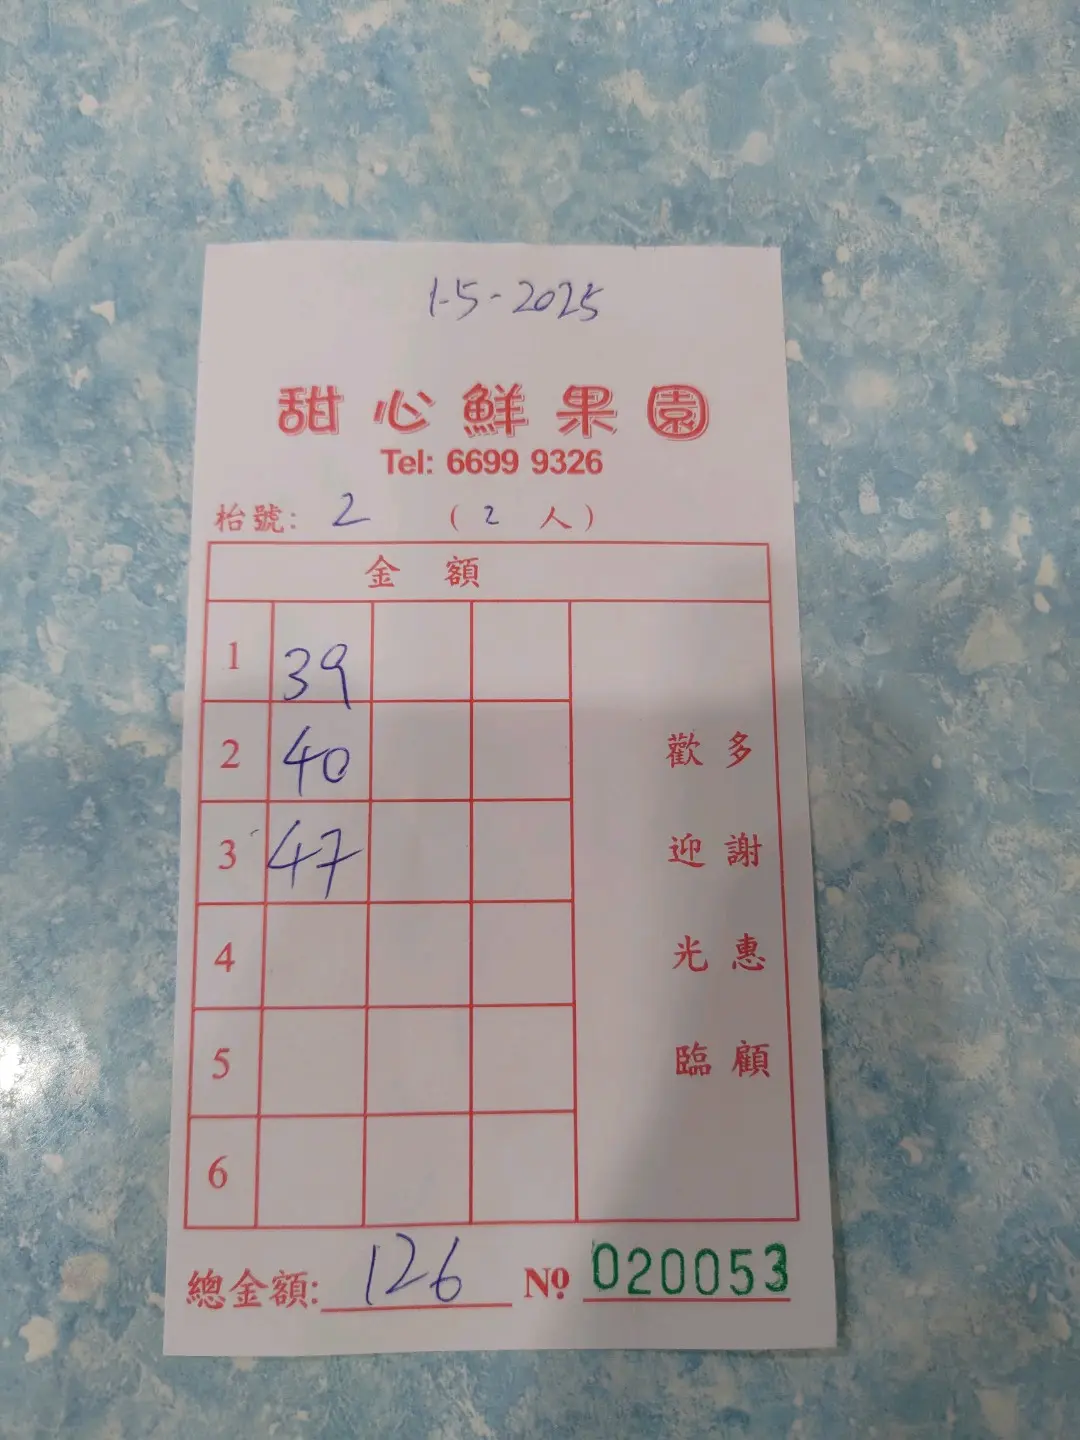 1-5-2025
甜心鮮果園
Tel: 6699 9326
枱號: 2 ( 2 人 )
金 額
1 39
2 40
3 47
4
5
6
多謝惠顧
歡迎光臨
總金額: 126 Nº 020053